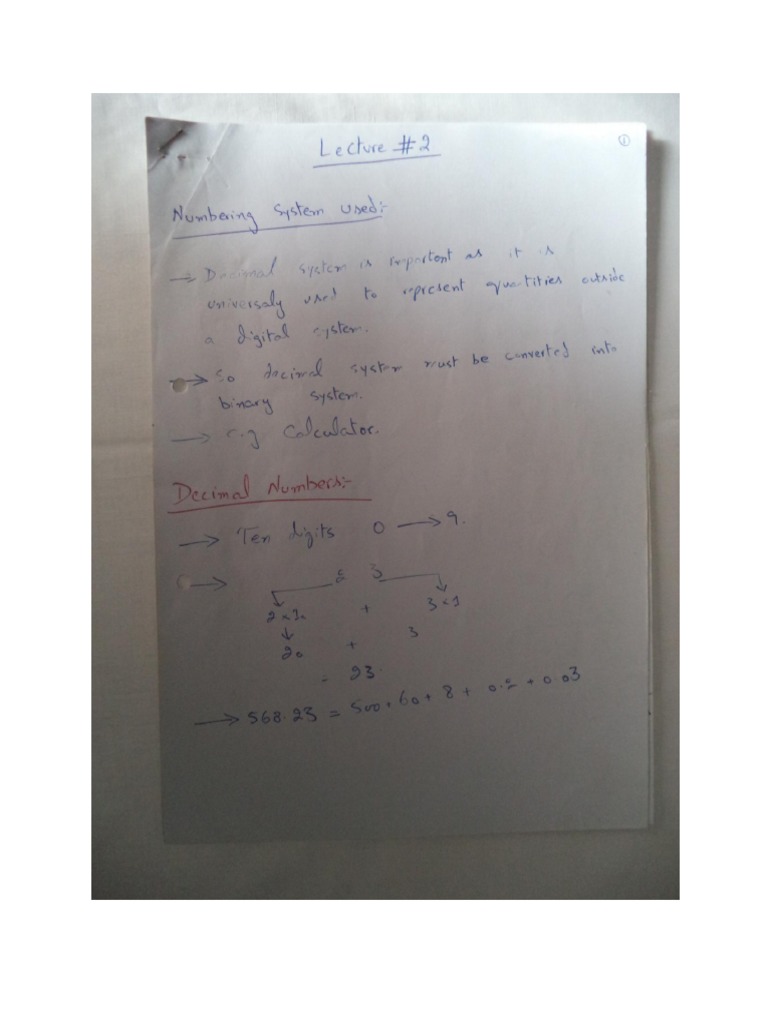 Lecture #2
①
Numbering System used:-
→ Decimal system is important as it is
universaly used to represent quantities outside
a digital system.
→ So decimal system must be converted into
binary system.
→ e.g Calculator.
Decimal Numbers:-
→ Ten digits 0 → 9.
→ 2 3
2 × 10 + 3 × 1
20 + 3
= 23.
→ 568.23 = 500 + 60 + 8 + 0.2 + 0.03